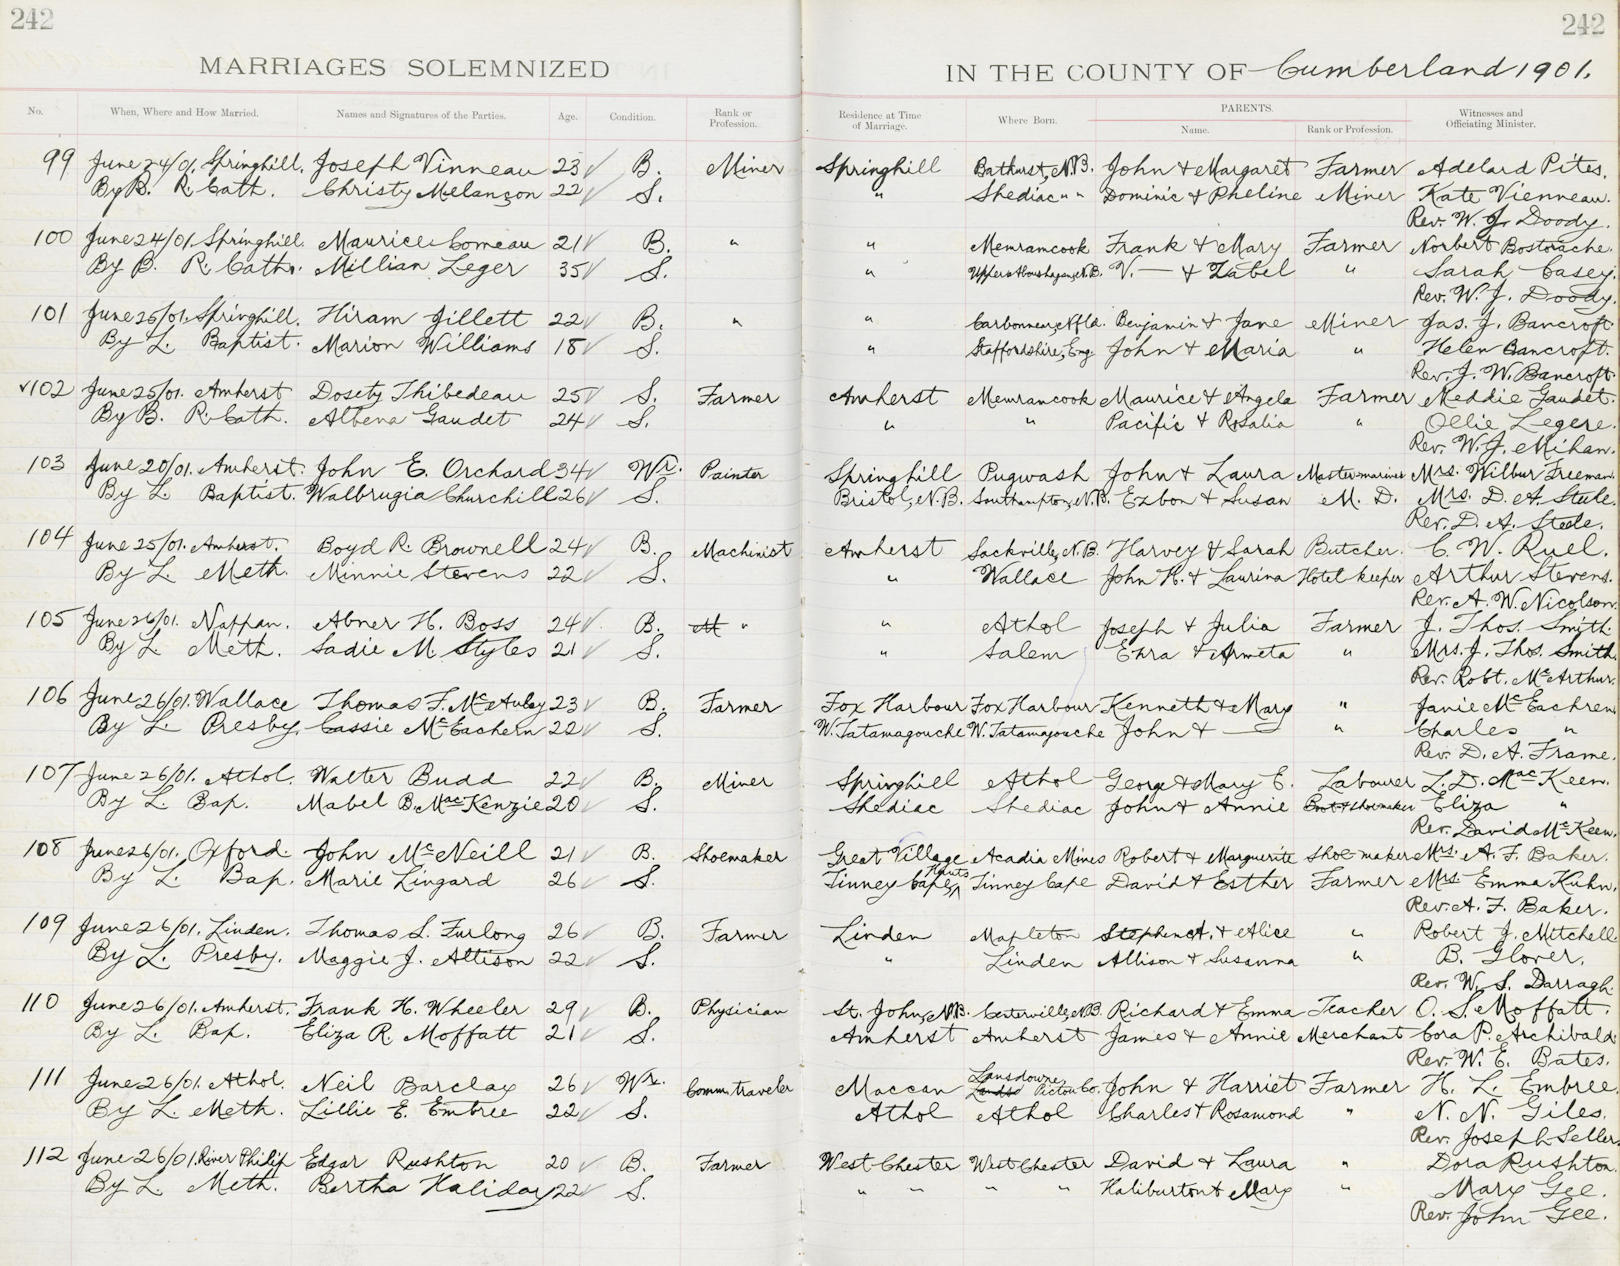 242 242
MARRIAGES SOLEMNIZED IN THE COUNTY OF Cumberland 1901.
No. When, Where and How Married. Names and Signatures of the Parties. Age. Condition. Rank or Profession. Residence at Time of Marriage. Where Born. PARENTS. Name. Rank or Profession. Witnesses and Officiating Minister.
99 June 24/01. Springhill. Joseph Vinneau 23 B. Miner Springhill Bathurst, N.B. John & Margaret Farmer Adelard Pites.
By B. R. Cath. Christy Melançon 22 S. " Shediac " " Dominic & Pheline Miner Kate Vienneau.
Rev. W. J. Doody.
100 June 24/01. Springhill. Maurice Comeau 21 B. " " Memramcook Frank & Mary Farmer Norbert Bostorache.
By B. R. Cath. Millian Leger 35 S. " V. — & Zabel " Sarah Casey.
Rev. W. J. Doody.
101 June 25/01. Springhill. Hiram Jillett 22 B. " " Carbonear, Nfld. Benjamin & Jane Miner Jas. J. Bancroft.
By L. Baptist. Marion Williams 18 S. " Staffordshire, Eng John & Maria " Helen Bancroft.
Rev. J. W. Bancroft.
√102 June 25/01. Amherst Dosety Thibedeau 25 S. Farmer Amherst Memramcook Maurice & Angela Farmer Meddie Gaudet.
By B. R. Cath. Albena Gaudet 24 S. " " Pacific & Rosalia " Ollie Legere.
Rev. W. J. Mihan.
103 June 20/01. Amherst. John E. Orchard 34 Wr. Painter Springhill Pugwash John & Laura Master mariner Mrs. Wilbur Freeman.
By L. Baptist. Walbrugia Churchill 26 S. Bristol, N.B. Southampton, N.B. Ezbon & Susan M. D. Mrs. D. A. Steele.
Rev. D. A. Steele.
104 June 25/01. Amherst. Boyd R. Brownell 24 B. Machinist Amherst Sackville, N.B. Harvey & Sarah Butcher. C. W. Ruel.
By L. Meth. Minnie Stevens 22 S. " Wallace John H. & Laurina Hotel keeper Arthur Stevens.
Rev. A. W. Nicolson.
105 June 26/01. Nappan. Abner H. Boss 24 B. M " " Athol Joseph & Julia Farmer J. Thos. Smith.
By L. Meth. Sadie M. Styles 21 S. " Salem Ezra & Armeta " Mrs. J. Thos. Smith.
Rev. Robt. McArthur.
106 June 26/01. Wallace Thomas F. McAulay 23 B. Farmer Fox Harbour Fox Harbour Kenneth & Mary " Janie McEachren
By L. Presby. Cassie McEachern 22 S. W. Tatamagouche W. Tatamagouche John & — " Charles "
Rev. D. A. Frame.
107 June 26/01. Athol. Walter Budd 22 B. Miner Springhill Athol George & Mary E. Labourer L. D. MacKeen.
By L. Bap. Mabel B. MacKenzie 20 S. Shediac Shediac John & Annie Boot & shoemaker Eliza "
Rev. David McKeen.
108 June 26/01. Oxford. John McNeill 21 B. Shoemaker Great Village Acadia Mines Robert & Marguerite Shoe maker Mrs. A. F. Baker.
By L. Bap. Marie Lingard 26 S. Tinney Cape, Hants Tinney Cape David & Esther Farmer Mrs. Emma Kuhn.
Rev. A. F. Baker.
109 June 26/01. Linden. Thomas S. Furlong 26 B. Farmer Linden Mapleton Stephen A. & Alice " Robert J. Mitchell
By L. Presby. Maggie J. Allison 22 S. " Linden Allison & Susanna " B. Glover.
Rev. W. S. Darragh.
110 June 26/01. Amherst. Frank H. Wheeler 29 B. Physician St. John, N.B. Centerville, N.B. Richard & Emma Teacher O. S. Moffatt.
By L. Bap. Eliza R. Moffatt 21 S. Amherst Amherst James & Annie Merchant Cora P. Archibald.
Rev. W. E. Bates.
111 June 26/01. Athol. Neil Barclay 26 Wr. Comm. traveler Maccan Lansdowne Pictou Co. John & Harriet Farmer H. L. Embree.
By L. Meth. Lillie E. Embree 22 S. Athol Athol Charles & Rosamond " N. N. Giles.
Rev. Joseph Seller.
112 June 26/01. River Philip Edgar Rushton 20 B. Farmer West Chester West Chester David & Laura " Dora Rushton
By L. Meth. Bertha Haliday 22 S. " " " " Haliburton & Mary " Mary Gee.
Rev. John Gee.